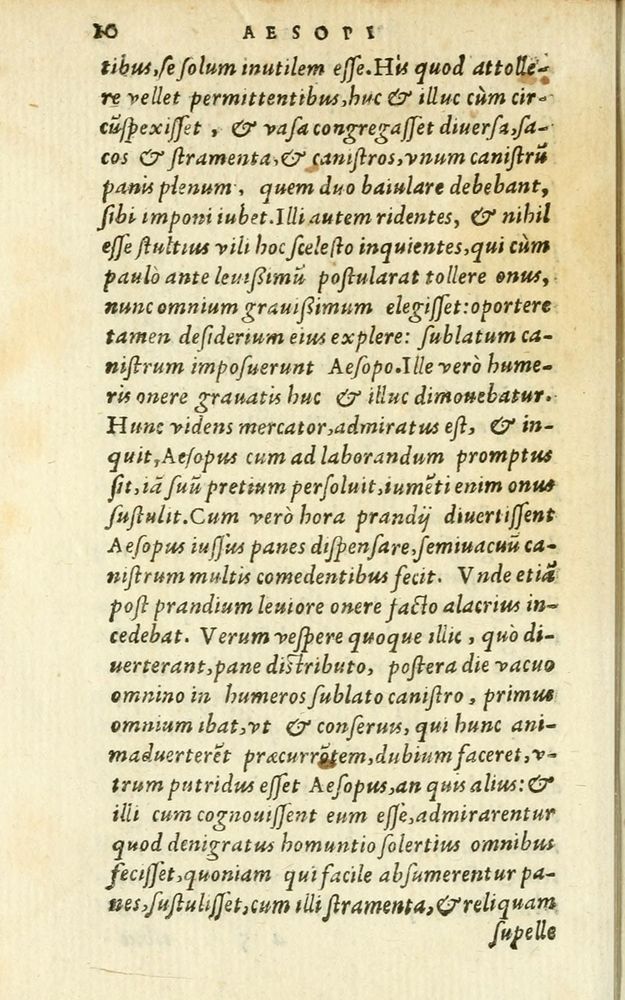 10 AESOPI
tibus, ſe ſolum inutilem eſſe. His quod attolle-
re vellet permittentibus, huc & illuc cùm cir-
cũſpexiſſet, & vaſa congregaſſet diuerſa, ſa-
cos & ſtramenta, & caniſtros, vnum caniſtrũ
panis plenum, quem duo baiulare debebant,
ſibi imponi iubet. Illi autem ridentes, & nihil
eſſe ſtultius vili hoc ſceleſto inquientes, qui cùm
paulò ante leuißimũ poſtularat tollere onus,
nunc omnium grauißimum elegiſſet: oportere
tamen deſiderium eius explere: ſublatum ca-
niſtrum impoſuerunt Aeſopo. Ille verò hume-
ris onere grauatis huc & illuc dimouebatur.
Hunc videns mercator, admiratus eſt, & in-
quit, Aeſopus cum ad laborandum promptus
ſit, iã ſuũ pretium perſoluit, iumẽti enim onus
ſuſtulit. Cum verò hora prandij diuertiſſent
Aeſopus iuſſus panes diſpenſare, ſemiuacuũ ca-
niſtrum multis comedentibus fecit. Vnde etiã
poſt prandium leuiore onere facto alacrius in-
cedebat. Verum veſpere quoque illic, quò di-
uerterant, pane diſtributo, poſtera die vacuo
omnino in humeros ſublato caniſtro, primus
omnium ibat, vt & conſeruis, qui hunc ani-
maduerterẽt præcurrẽtem, dubium faceret, v-
trum putridus eſſet Aeſopus, an quis alius: &
illi cum cognouiſſent eum eſſe, admirarentur
quod denigratus homuntio ſolertius omnibus
feciſſet, quoniam qui facile abſumerentur pa-
nes, ſuſtuliſſet, cum illi ſtramenta, & reliquam
ſupelle